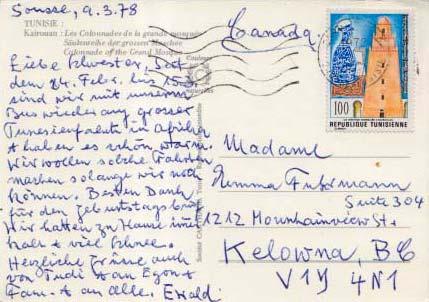 Sousse, 9.3.78
Canada
TUNISIE :
Kairouan : Les Colonnades de la grande mosquée
Säulenreihe der grossen Moschee
Colonnade of the Grand Mosque
100
REPUBLIQUE TUNISIENNE
Liebe Schwester, Seit
dem 24. Febr. bis 15.3.
sind wir mit unserem
Bus wieder auf grosser
Tunesienfahrt in Afrika
+ haben es schön warm.
Wir wollen solche Fahrten
machen solange wir noch
können. Besten Dank
für den Geburtstagsbrief
Wir hatten zu Hause immer
kalt + viel Schnee.
Herzliche Grüsse auch
von Trudi + an Egon +
Fam. + an alle. Ewald.
Madame
Emma Fuhrmann
Suite 304
1212 Mounhainview St.
Kelowna, BC
V1Y 4N1